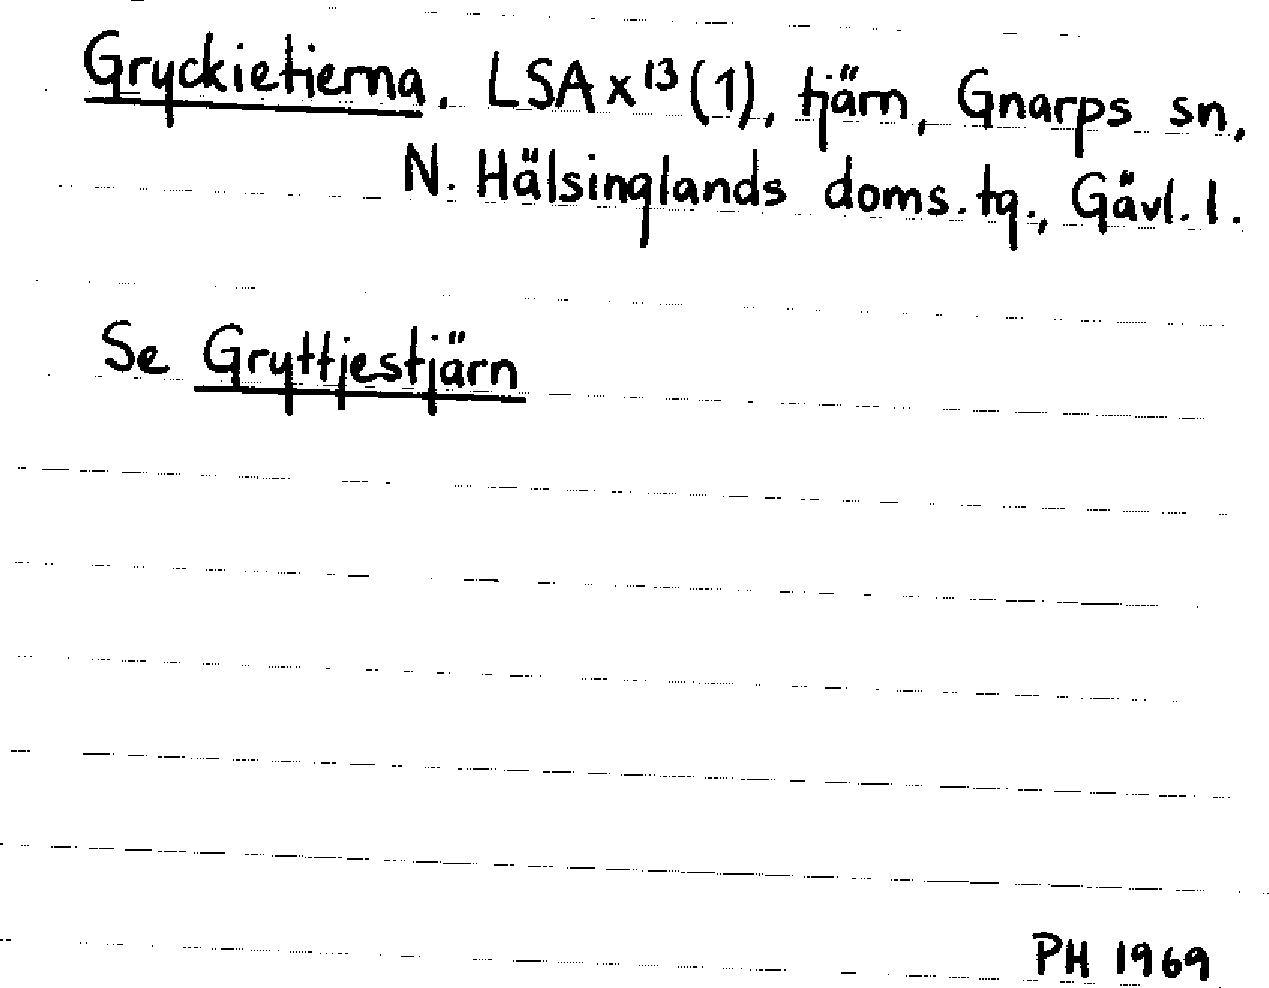 Gryckietierna. LSA x¹³(1), tjärn, Gnarps sn,
N. Hälsinglands doms.tg., Gävl.l.
Se Gryttjestjärn
PH 1969